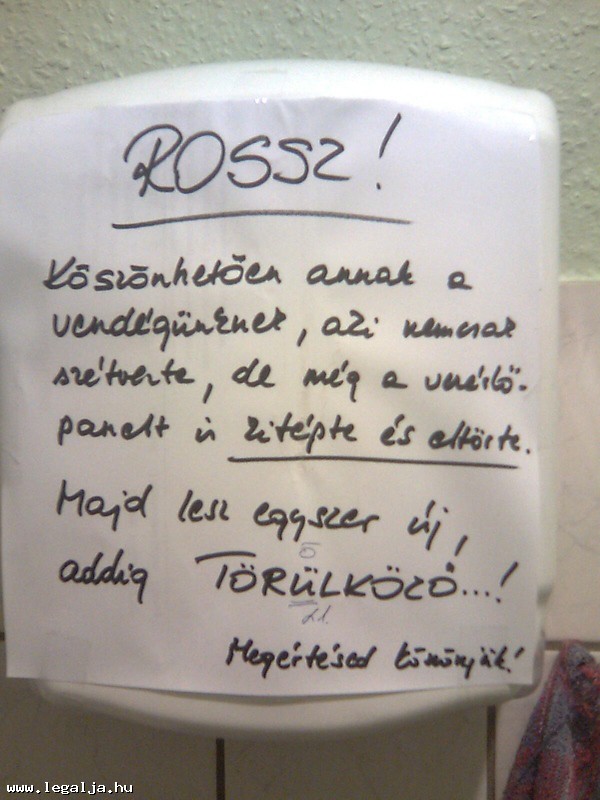 ROSSZ!
Köszönhetően annak a
vendégünknek, aki nemcsak
szétverte, de még a vezérlő-
panelt is kitépte és eltörte.
Majd lesz egyszer új,
addig TÖRÜLKÖZŐ...!
Ö
Megértésed köszönjük!
www.legalja.hu